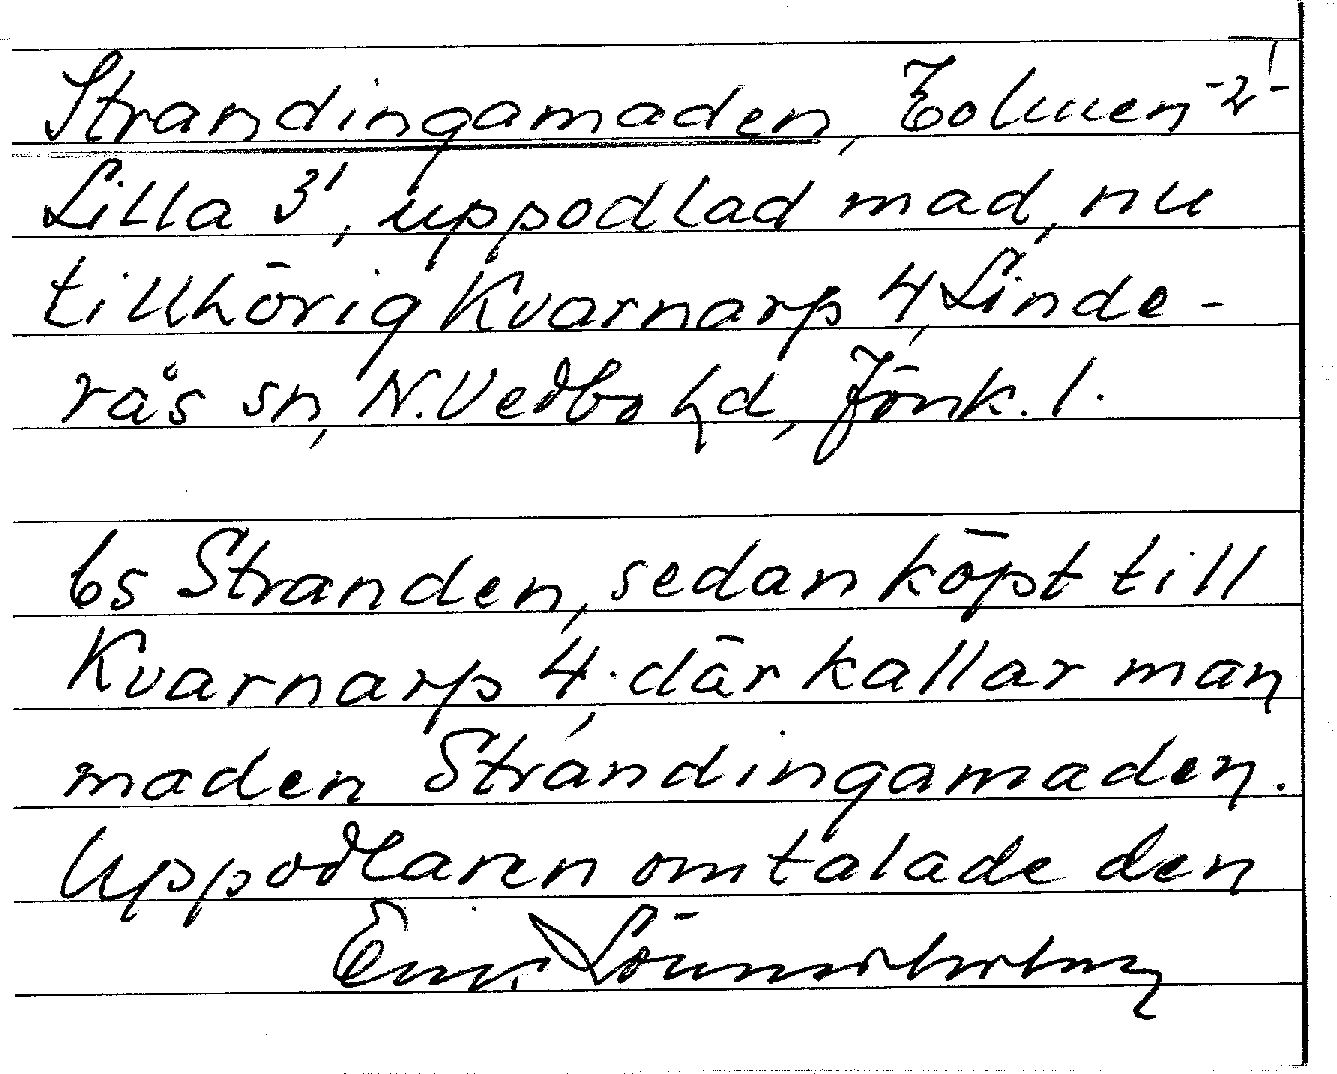 Strandingamaden, Tolmen -2¹-
Lilla 3¹, uppodlad mad, nu
tillhörig Kvarnarp 4, Linde-
rås sn, N. Vedbo hd, Jönk. l.
bs Stranden, sedan köpt till
Kvarnarp 4, där kallar man
maden Strandingamaden.
Uppodlaren omtalade den